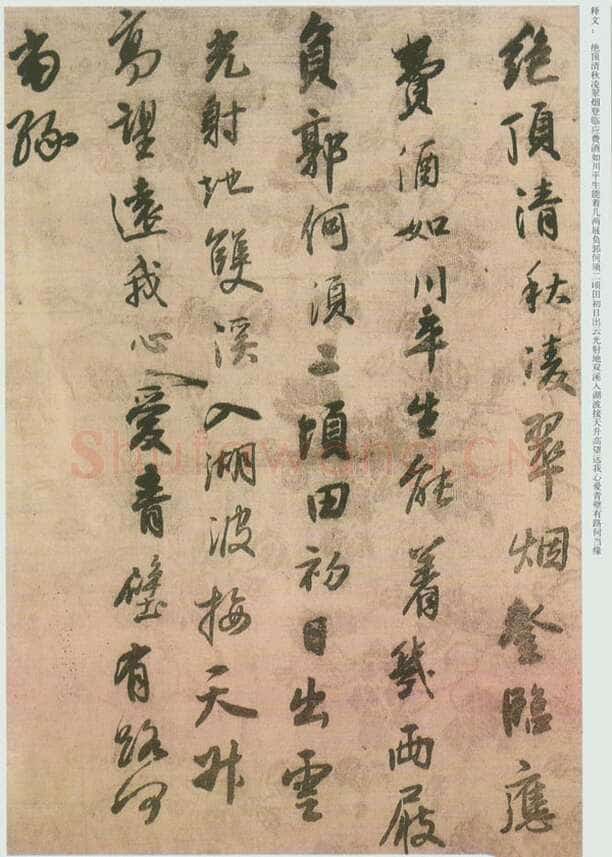 释文： 绝顶清秋凌翠烟登临应费酒如川平生能着几两屐负郭何须二顷田初日出云光射地双溪入湖波接天升高望远我心爱青壁有路何当缘
絶頂清秋凌翠烟登臨應
費酒如川平生能着幾两屐
負郭何須二頃田初日出雲
光射地雙溪入湖波接天升
高望遠我心愛青壁有路何
當緣
Shufawang.CN